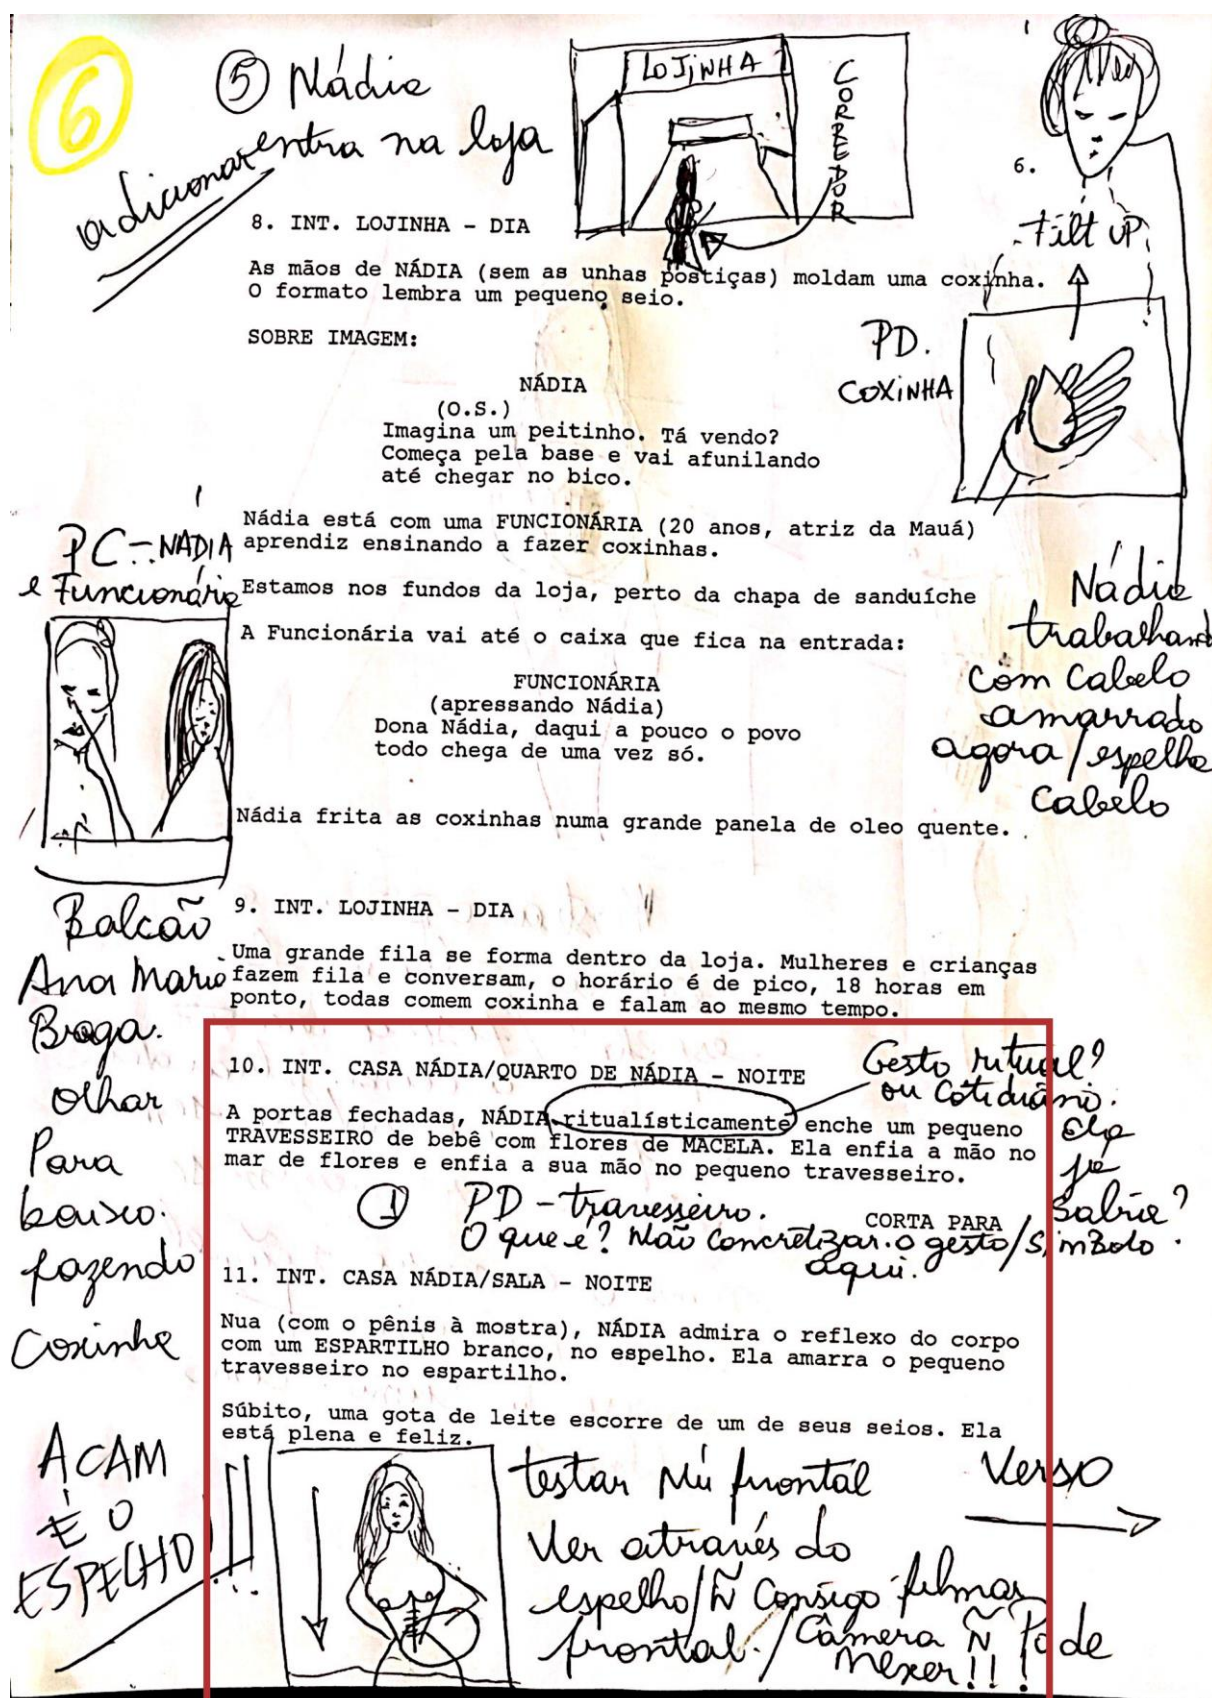 6
⑤ Nádia
adicionar entra na loja
LOJINHA
CORREDOR
6.
Tilt UP
8. INT. LOJINHA - DIA
As mãos de NÁDIA (sem as unhas postiças) moldam uma coxinha.
O formato lembra um pequeno seio.
SOBRE IMAGEM:
PD.
COXINHA
NÁDIA
(O.S.)
Imagina um peitinho. Tá vendo?
Começa pela base e vai afunilando
até chegar no bico.
PC - NÁDIA
e Funcionária
Nádia está com uma FUNCIONÁRIA (20 anos, atriz da Mauá)
aprendiz ensinando a fazer coxinhas.
Estamos nos fundos da loja, perto da chapa de sanduíche
A Funcionária vai até o caixa que fica na entrada:
Nádia
trabalhando
com cabelo
amarrado
agora/espelho
Cabelo
FUNCIONÁRIA
(apressando Nádia)
Dona Nádia, daqui a pouco o povo
todo chega de uma vez só.
Nádia frita as coxinhas numa grande panela de oleo quente.
Balcão
Ana Maria
Braga.
olhar
Para
baixo.
fazendo
Coxinha
9. INT. LOJINHA - DIA
Uma grande fila se forma dentro da loja. Mulheres e crianças
fazem fila e conversam, o horário é de pico, 18 horas em
ponto, todas comem coxinha e falam ao mesmo tempo.
10. INT. CASA NÁDIA/QUARTO DE NÁDIA - NOITE
Gesto ritual?
ou cotidiano.
Ela
já
Sabia?
A portas fechadas, NÁDIA ritualísticamente enche um pequeno
TRAVESSEIRO de bebê com flores de MACELA. Ela enfia a mão no
mar de flores e enfia a sua mão no pequeno travesseiro.
① PD - travesseiro.
CORTA PARA
O que é? Não Concretizar o gesto/Símbolo.
aqui.
11. INT. CASA NÁDIA/SALA - NOITE
Nua (com o pênis à mostra), NÁDIA admira o reflexo do corpo
com um ESPARTILHO branco, no espelho. Ela amarra o pequeno
travesseiro no espartilho.
Súbito, uma gota de leite escorre de um de seus seios. Ela
está plena e feliz.
A CAM
É O
ESPELHO!!!
testar Nú frontal
Ver através do
espelho/Ñ Consigo filmar
frontal./Câmera Ñ Pode
Mexer!!!
Verso